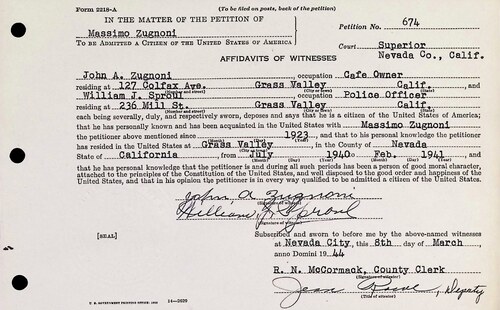 Form 2218-A
(To be filed on posts, back of the petition)
IN THE MATTER OF THE PETITION OF
Petition No. 674
Massimo Zugnoni
TO BE ADMITTED A CITIZEN OF THE UNITED STATES OF AMERICA
Court Superior
Nevada Co., Calif.
AFFIDAVITS OF WITNESSES
John A. Zugnoni occupation Cafe Owner
residing at 127 Colfax Ave. Grass Valley Calif. , and
(Number and street) (City or town) (State)
William J. Sproul occupation Police Officer
residing at 236 Mill St. Grass Valley Calif.
(Number and street) (City or town) (State)
each being severally, duly, and respectively sworn, deposes and says that he is a citizen of the United States of America;
that he has personally known and has been acquainted in the United States with Massimo Zugnoni
the petitioner above mentioned since 1923 , and that to his personal knowledge the petitioner
has resided in the United States at Grass Valley , in the County of Nevada
(City or town)
State of California , from July 1940 to Feb. 1941 ;
(Month) (Day) (Year) (Month) (Day) (Year)
that he has personal knowledge that the petitioner is and during all such periods has been a person of good moral character,
attached to the principles of the Constitution of the United States, and well disposed to the good order and happiness of the
United States, and that in his opinion the petitioner is in every way qualified to be admitted a citizen of the United States.
John A Zugnoni
(Signature of witness)
William J. Sproul
(Signature of witness)
[SEAL]
Subscribed and sworn to before me by the above-named witnesses
at Nevada City, this 8th day of March ,
anno Domini 1944
R. N. McCormack, County Clerk
, Deputy
(Title of officer)
U. S. GOVERNMENT PRINTING OFFICE
14-2029